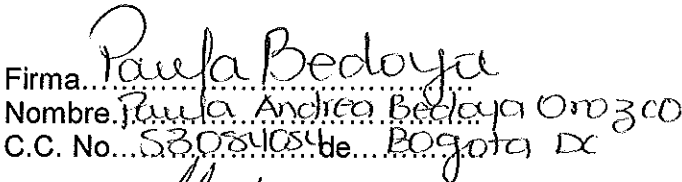 Firma..Paula Bedoya
Nombre.Paula Andrea Bedoya Orozco
C.C. No...53084054de....Bogota DC